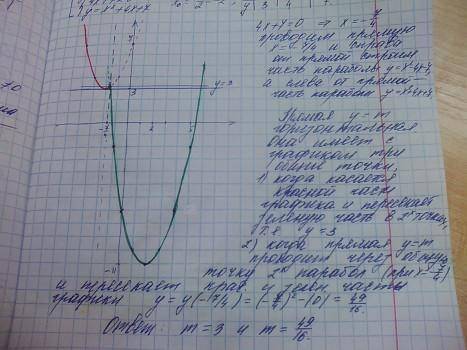 y = x² + 6x + 7
4x + 7 = 0 ⇒ x = -7/4
проводим прямую
x = -7/4 и справа
от прямой строим
часть параболы y = x²-4x-7,
а слева от прямой –
часть параболы y = x²+4x+7.
Прямая y = m
горизонтальная
она имеет с
графиком три
общие точки,
1) когда касается
красной части
графика и пересекает
зеленую часть в 2х точках,
т.е. y = 3
2) когда прямая y = m
проходит через общую
точку 2х парабол (при x = -7/4)
и пересекает крас и зелен части
графики y = y(-7/4) = (-7/4)² - (0) = 49/16.
Ответ: m = 3 и m = 49/16.
y = 3
3
-3
2
5
-11